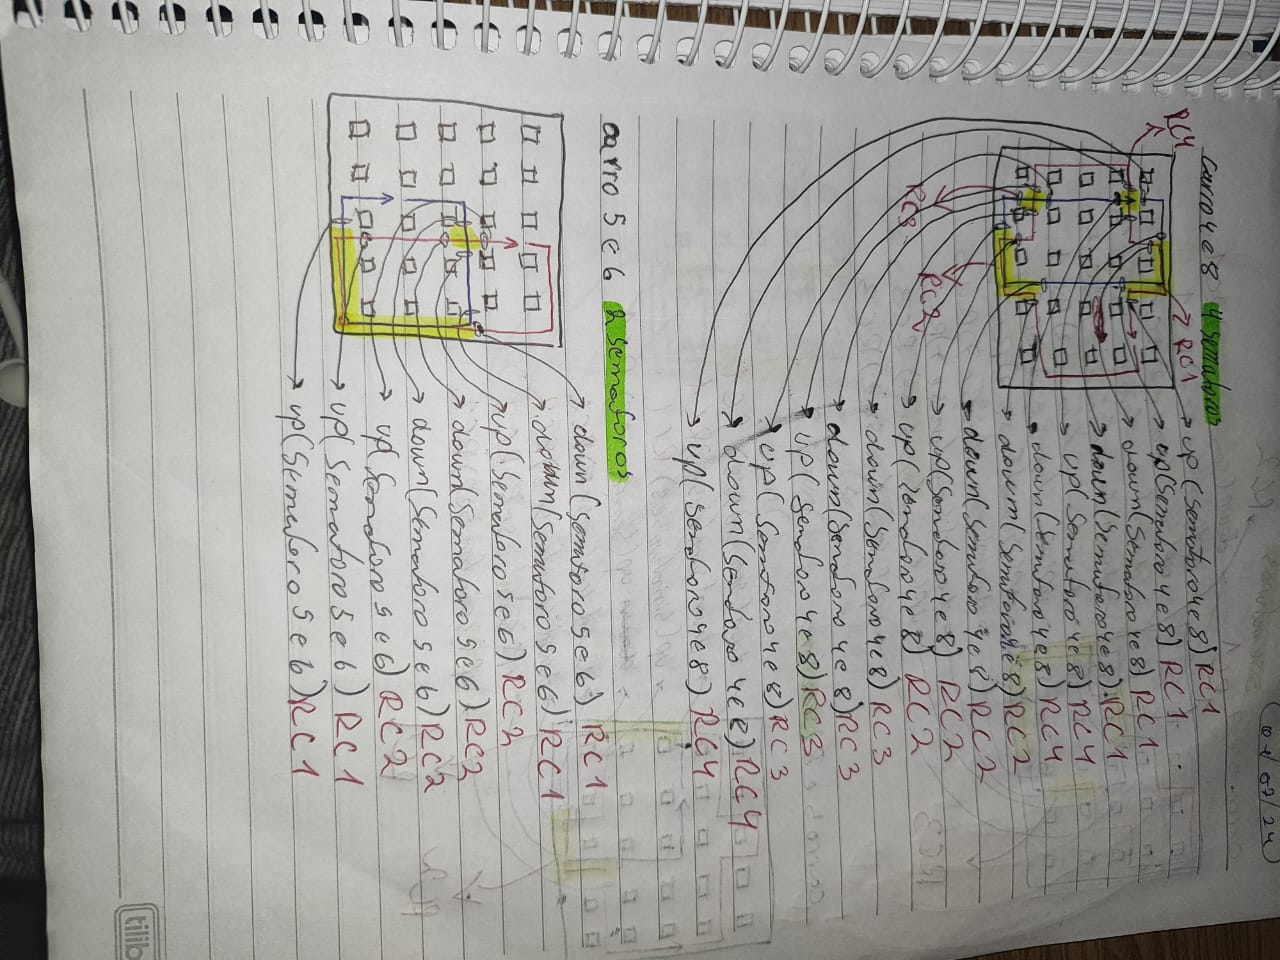 01/07/24
carro 4 e 8 4 semaforos
RC4
RC1
up (semaforo 4e8) RC1
up(semaforo 4 e 8) RC1
down(semaforo 4e8) RC1
down(semaforo 4e8) RC1
up(semaforo 4e8) RC4
down(semaforo 4e8) RC4
dowm(semaforo 4e8) RC2
down(semaforo 4e8) RC2
up(Semaforo 4e8) RC2
up(semaforo 4e8) RC2
RC3
RC2
down(semaforo 4e8) RC3
down(semaforo 4 e 8) RC3
up( semaforo 4e8) RC3
up( semaforo 4e8) RC3
down(semaforo 4e8) RC4
up(semaforo 4e8) RC4
carro 5 e 6 2 semaforos
down (semaforo 5 e 6) RC1
down(semaforo 5 e 6) RC1
up(semaforo 5e6) RC2
down(Semaforo 5e6) RC2
down(Semaforo 5 e 6) RC2
up(semaforo 5 e 6) RC2
up(semaforo 5 e 6) RC1
up(semaforo 5 e 6) RC1
tilib